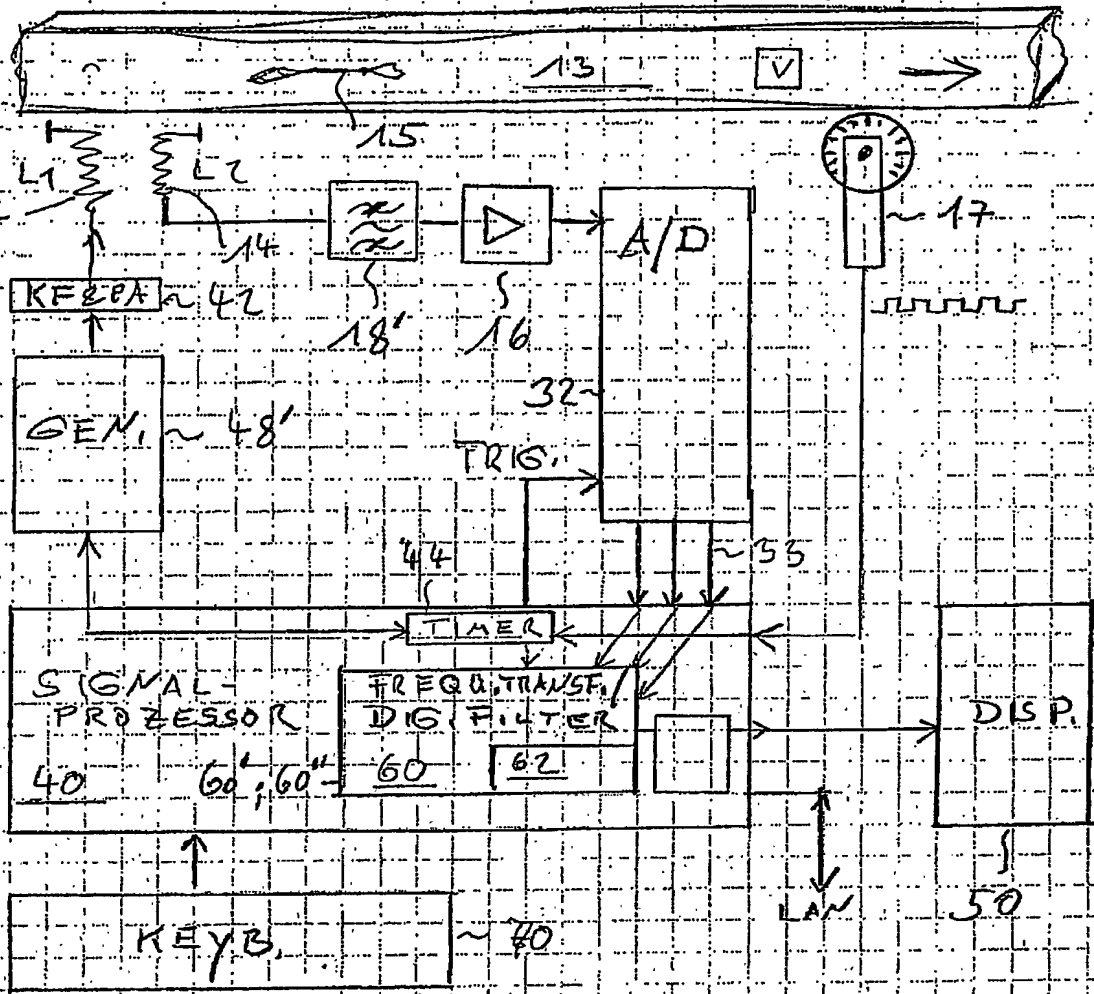 13
V
15
L1
L2
14
17
A/D
42
18'
16
32
GEN.
48'
TRIG.
44
33
TIMER
SIGNAL-
PROZESSOR
FREQU.TRANSF./
DIG.FILTER
DISP.
40
60';60"
60
62
LAN
50
KEYB.
70